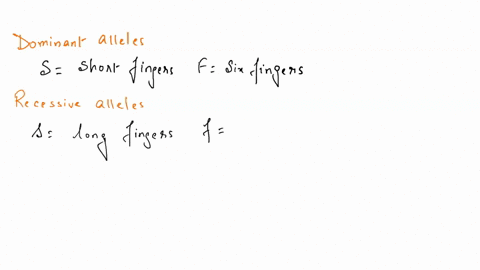 Dominant alleles
S= Short fingers F= Six fingers
Recessive alleles
s= long fingers f=